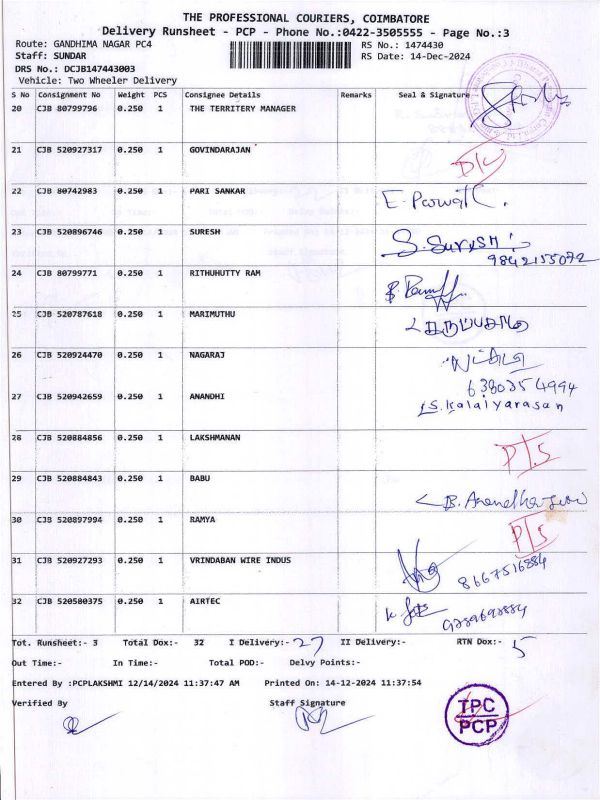 THE PROFESSIONAL COURIERS, COIMBATORE
Delivery Runsheet - PCP - Phone No.:0422-3505555 - Page No.:3
Route: GANDHIMA NAGAR PC4 RS No.: 1474430
Staff: SUNDAR RS Date: 14-Dec-2024
DRS No.: DCJB147443003
Vehicle: Two Wheeler Delivery
S No Consignment No Weight PCS Consignee Details Remarks Seal & Signature
20 CJB 80799796 0.250 1 THE TERRITERY MANAGER
21 CJB 520927317 0.250 1 GOVINDARAJAN
D/L
22 CJB 80742983 0.250 1 PARI SANKAR
23 CJB 520896746 0.250 1 SURESH S. Suresh
9842155072
24 CJB 80799771 0.250 1 RITHUHUTTY RAM
25 CJB 520787618 0.250 1 MARIMUTHU
26 CJB 520924470 0.250 1 NAGARAJ
6380354994
27 CJB 520942659 0.250 1 ANANDHI S. Kalaiyarasan
28 CJB 520884856 0.250 1 LAKSHMANAN
P/S
29 CJB 520884843 0.250 1 BABU
30 CJB 520897994 0.250 1 RAMYA P/S
31 CJB 520927293 0.250 1 VRINDABAN WIRE INDUS
8667516884
32 CJB 520500375 0.250 1 AIRTEC
Tot. Runsheet:- 3 Total Dox:- 32 I Delivery:- 27 II Delivery:- RTN Dox:- 5
Out Time:- In Time:- Total POD:- Delvy Points:-
Entered By :PCPLAKSHMI 12/14/2024 11:37:47 AM Printed On: 14-12-2024 11:37:54
Verified By Staff Signature
TPC
PCP